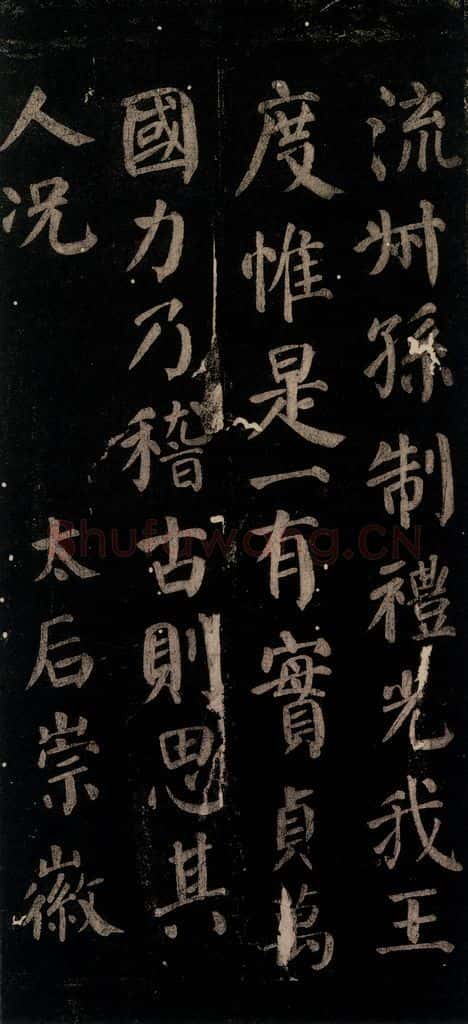 流叔孫制禮光我王
度惟是一有實貞萬
國力乃稽古則思其
人況 太后崇徽
Shufawang.CN